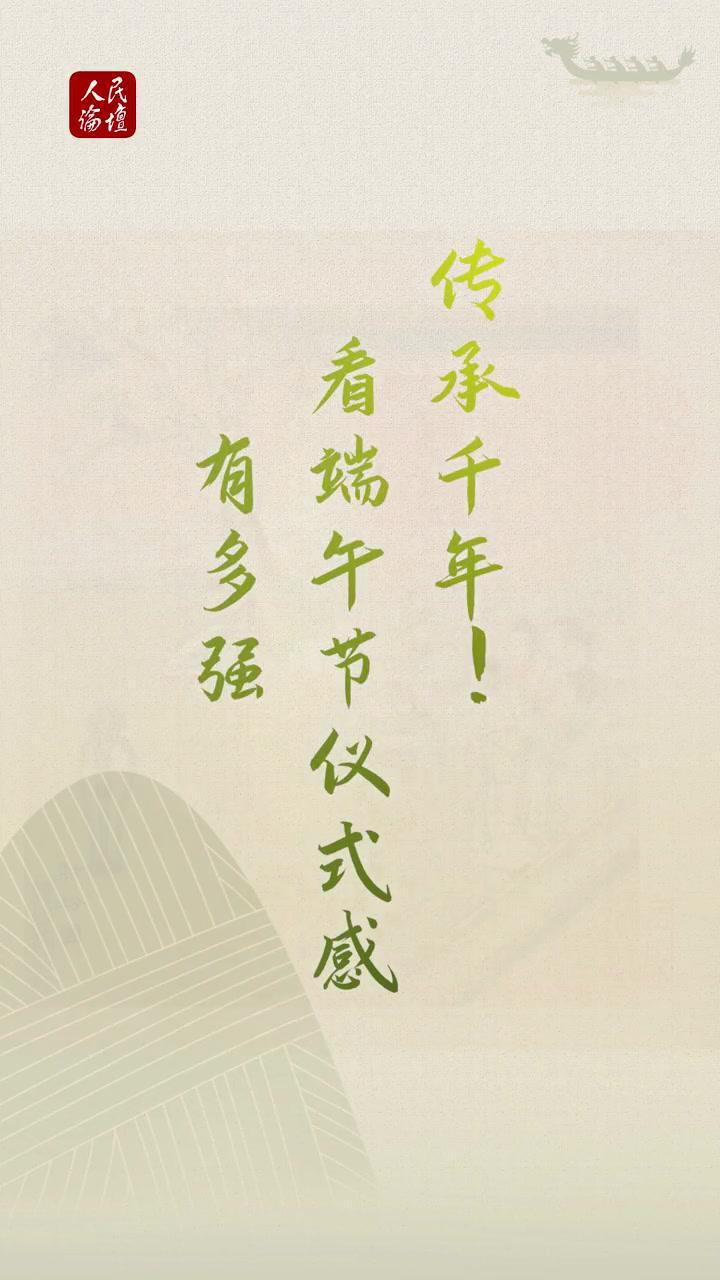 人民
論壇
传承千年！
看端午节仪式感
有多强